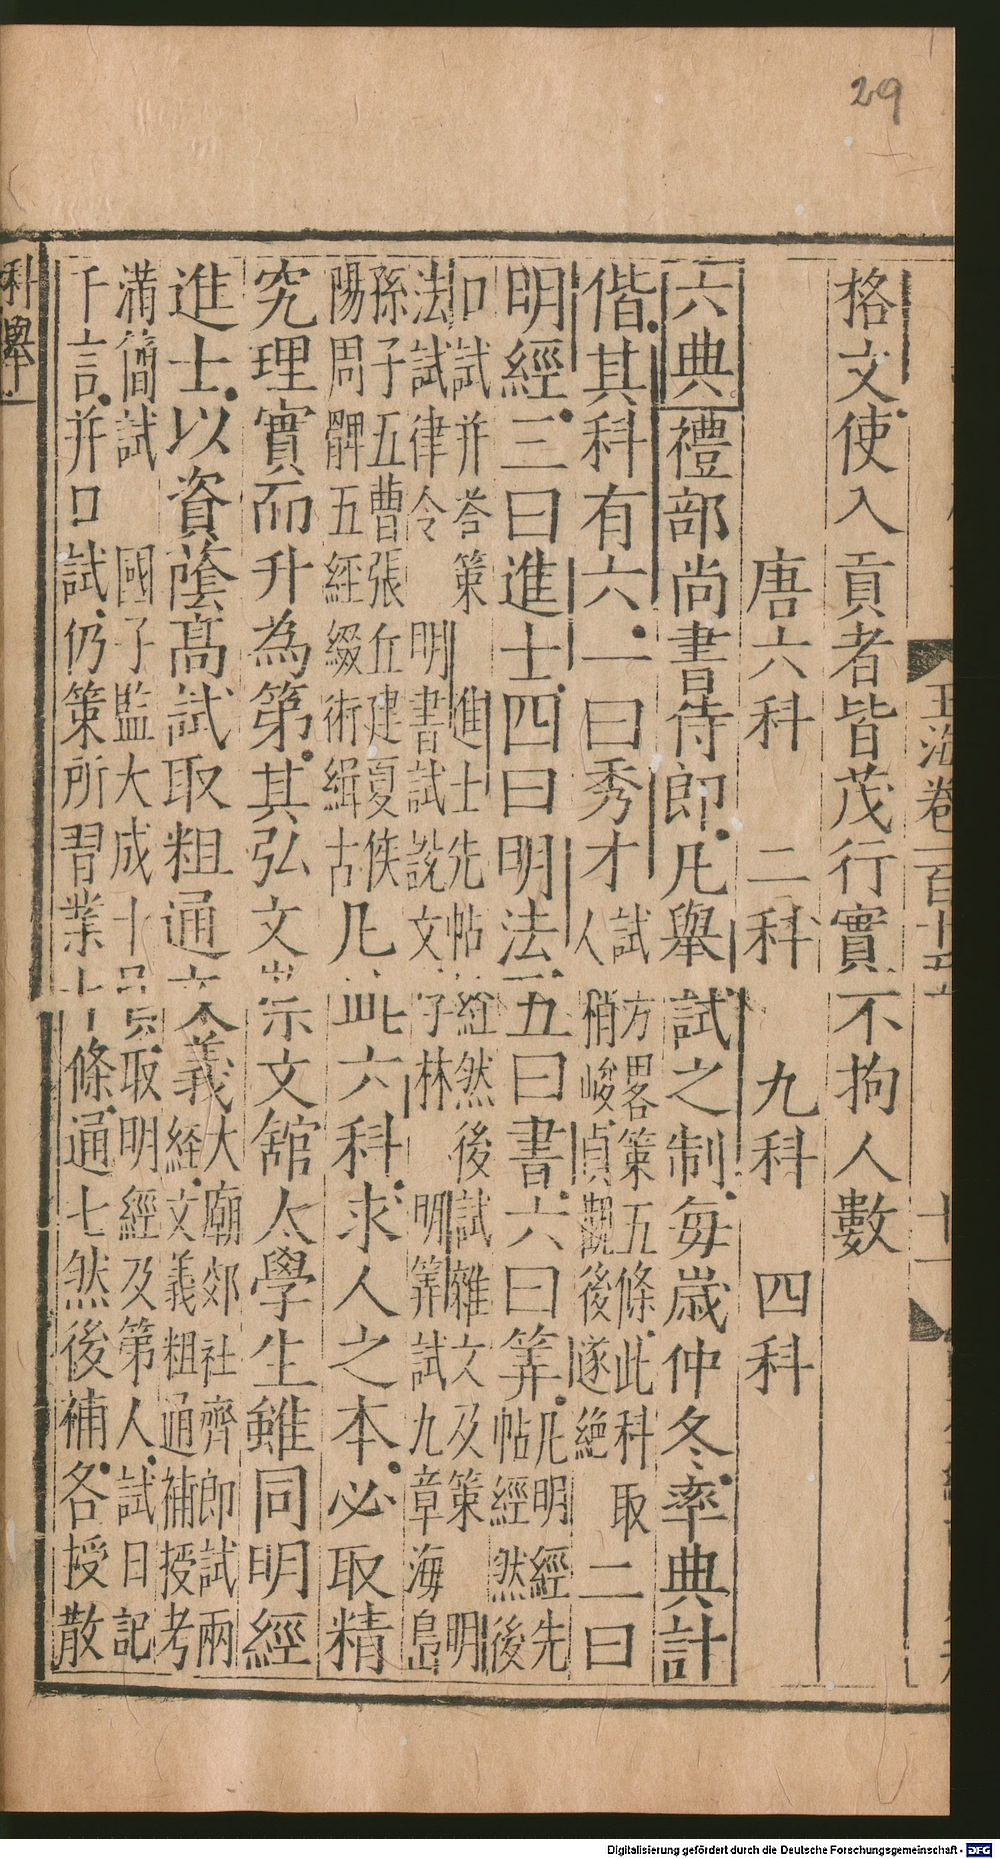 29
玉海卷一百十五
十一
格文使入貢者皆茂行實不拘人數
唐六科 二科 九科 四科
六典禮部尚書侍郎凡舉試之制每歲仲冬率典計
偕其科有六一曰秀才試方畧策五條此科取人稍峻貞觀後遂絶二曰
明經三曰進士四曰明法五曰書六曰筭凡明經先帖經然後
口試并荅策 進士先帖經然後試雜文及策 明法試律令 明書試說文字林 明筭試九章海島
孫子五曹張丘建夏侯陽周髀五經綴術緝古凡此六科求人之本必取精
究理實而升為第其弘文崇文舘太學生雖同明經
進士以資蔭髙試取粗通文義大廟郊社齊郎試兩經文義粗通補授考
滿簡試 國子監大成十員取明經及第人試日記
千言并口試仍策所習業十條通七然後補各授散
科舉
Digitalisierung gefördert durch die Deutsche Forschungsgemeinschaft - DFG